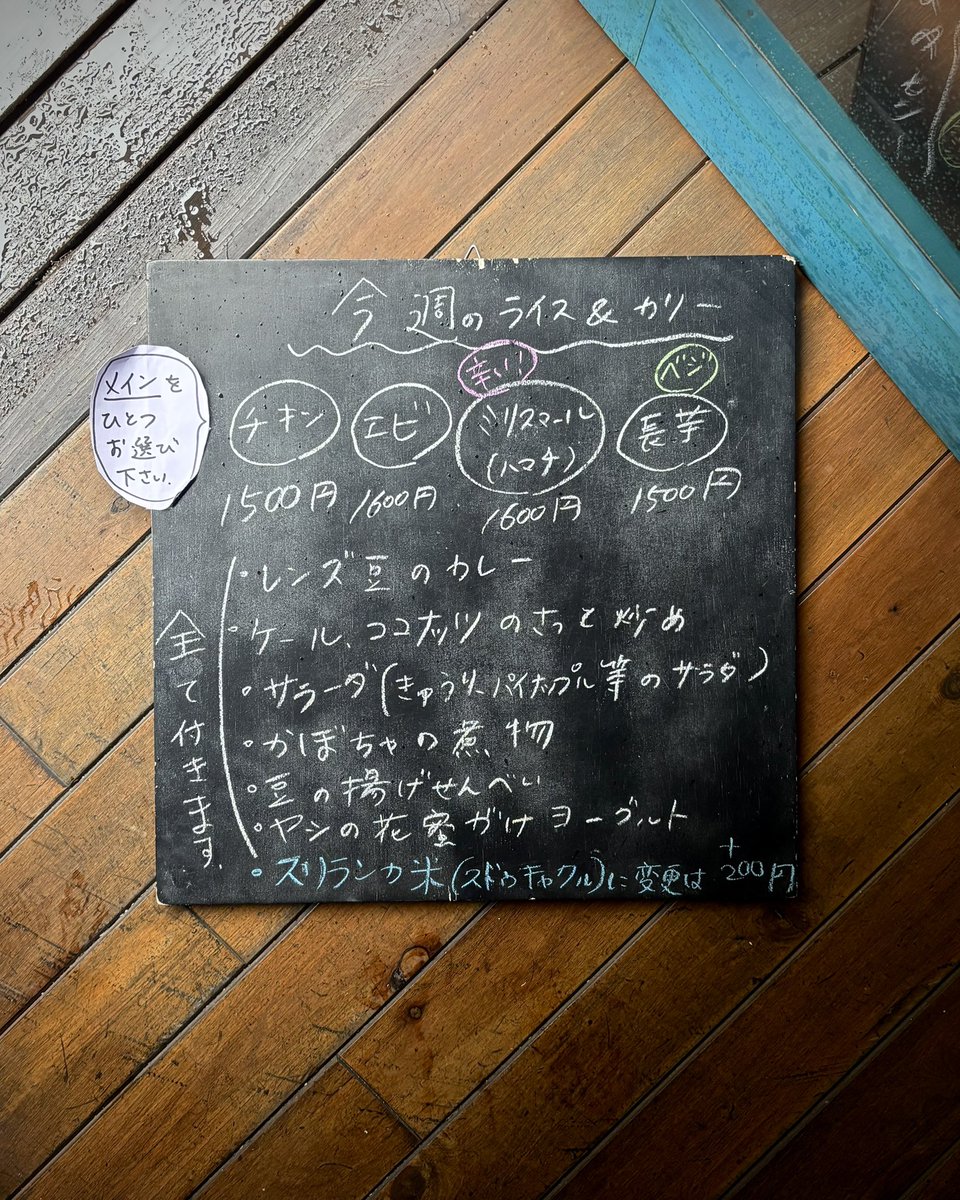 今週のライス&カリー
メインを
ひとつ
お選び
下さい.
辛い!
ベジ
チキン
エビ
ミリスマール
(ハマチ)
長芋
1500円
1600円
1600円
1500円
全て付きます.
・レンズ豆のカレー
・ケール、ココナッツのさっと炒め
・サラーダ(きゅうり、パイナップル等のサラダ)
・かぼちゃの煮物
・豆の揚げせんべい
・ヤシの花蜜がけヨーグルト
・スリランカ米(スドゥキャクル)に変更は+200円